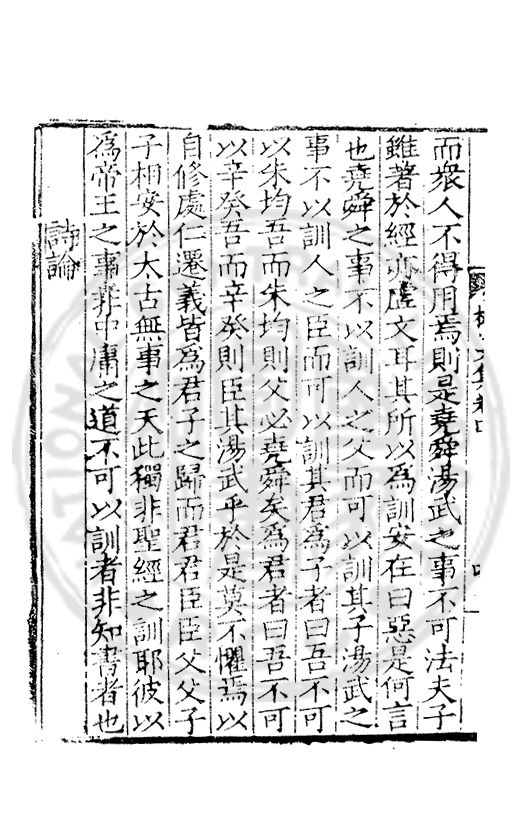 而衆人不得用焉則是堯舜湯武之事不可法夫子
雖著於經亦虛文耳其所以爲訓安在曰惡是何言
也堯舜之事不以訓人之父而可以訓其子湯武之
事不以訓人之臣而可以訓其君爲子者曰吾不可
以朱均吾而朱均則父必堯舜矣爲君者曰吾不可
以辛癸吾而辛癸則臣其湯武乎於是莫不懼焉以
自修處仁遷義皆爲君子之歸而君君臣臣父父子
子相安於太古無事之天此獨非聖經之訓耶彼以
爲帝王之事非中庸之道不可以訓者非知書者也
詩論